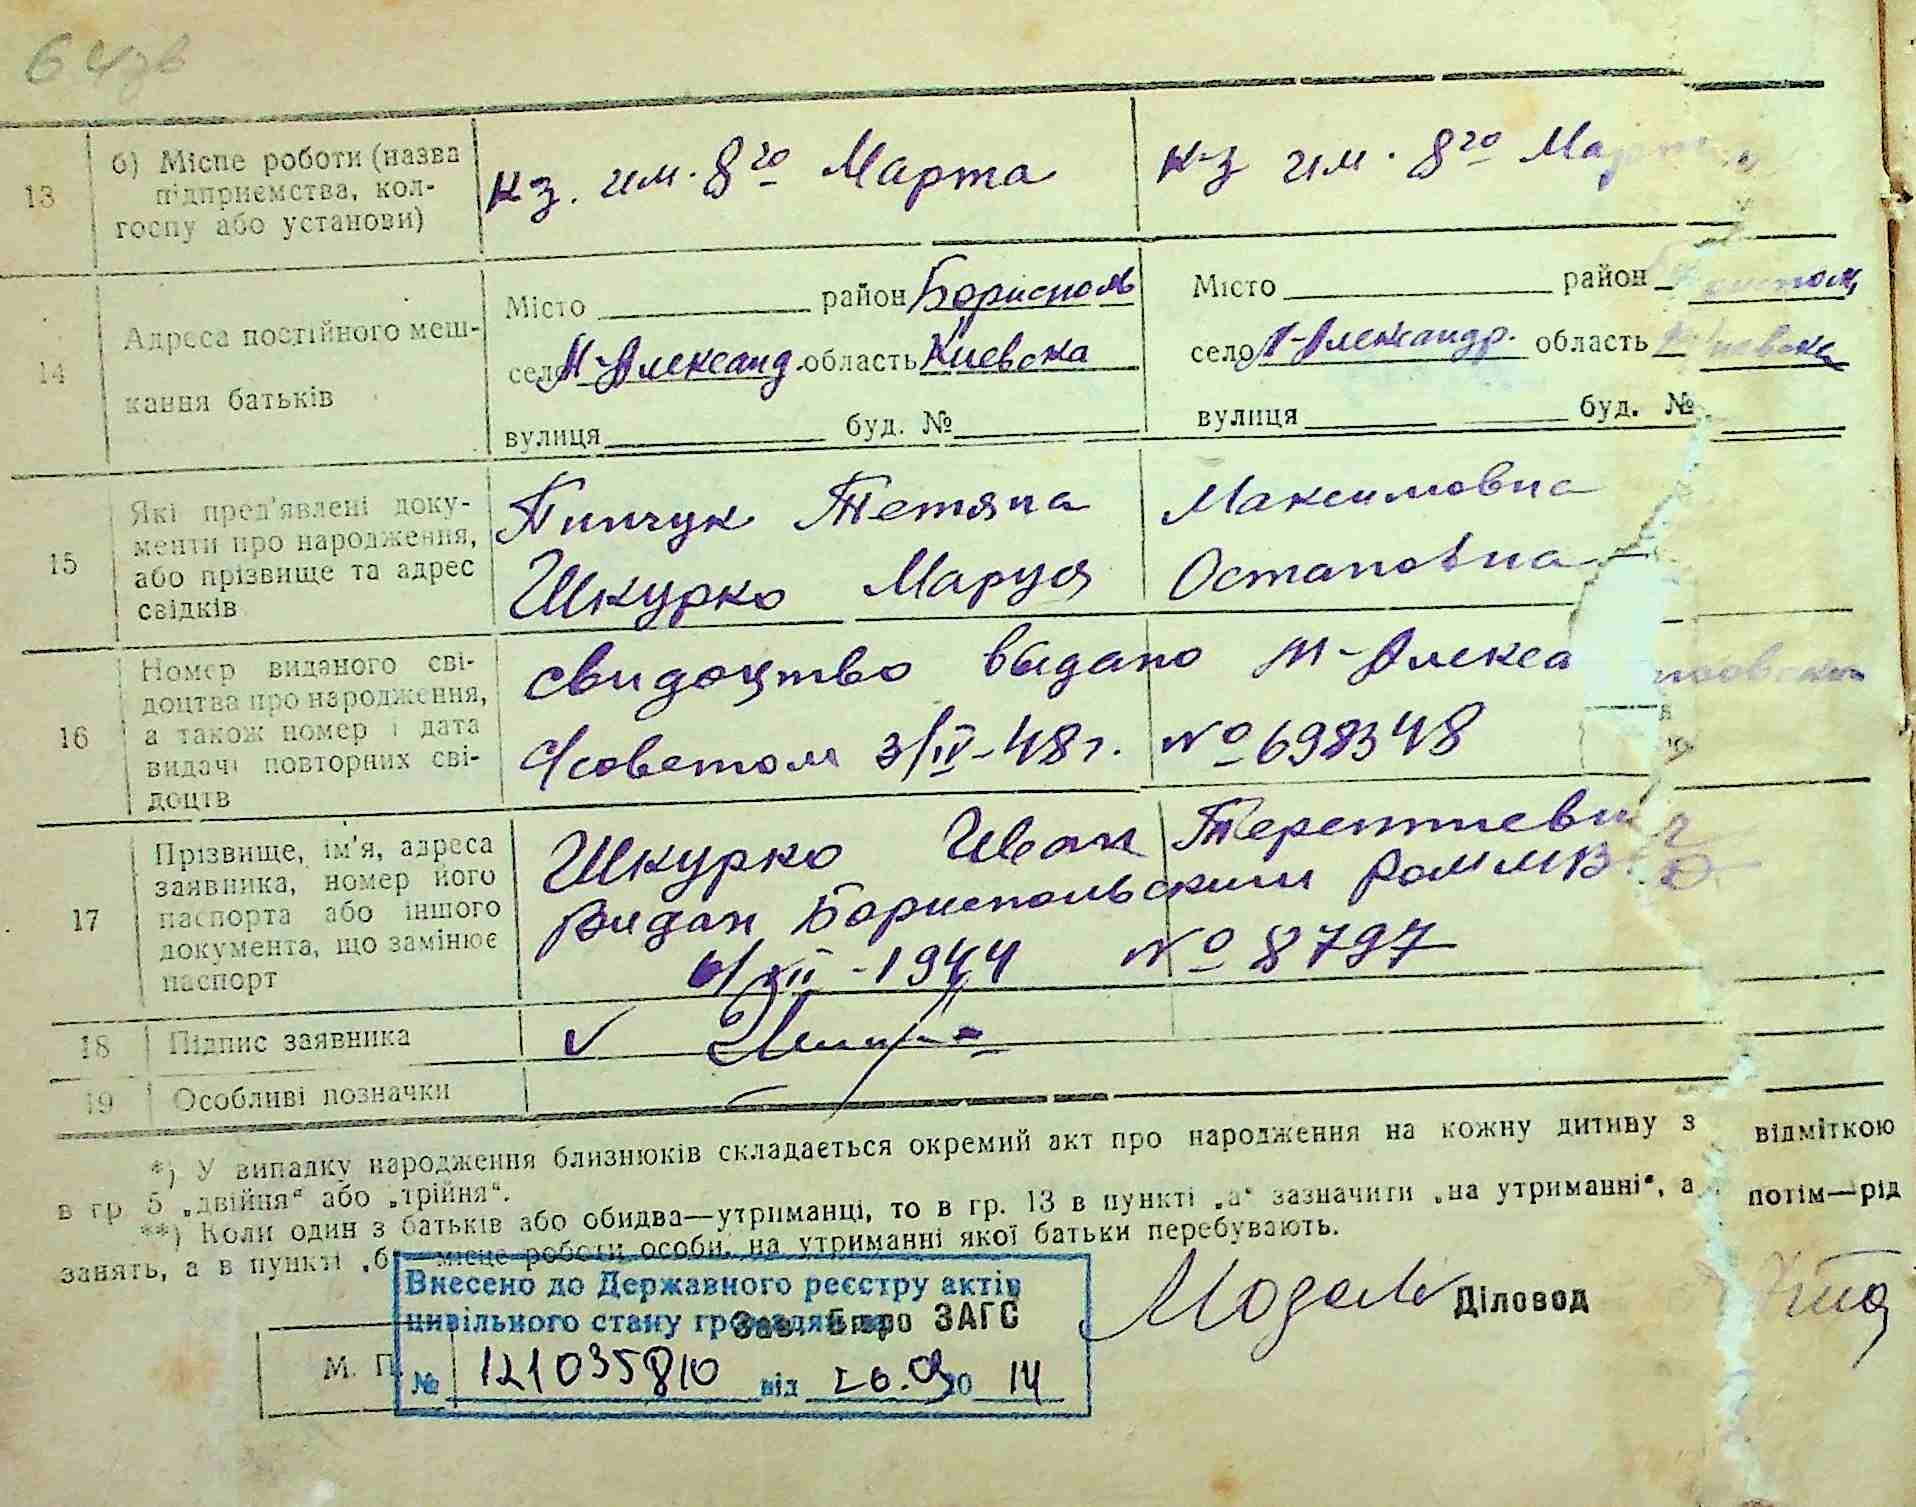 64зв
13 б) Місце роботи (назва підприємства, колгоспу або установи)
Кз. им. 8го Марта
К-з им. 8го Мар
14 Адреса постійного мешкання батьків
Місто район Борисполь
село М-Александ. область Киевска
вулиця буд. №
Місто район
село М-Александр. область Киевска
вулиця буд. №
15 Які пред'явлені документи про народження, або прізвище та адрес свідків
Пинчук Тетяна Максимовна
Шкурко Маруся Остаповна
16 Номер виданого свідоцтва про народження, а також номер і дата видачі повторних свідоцтв
свидоцтво выдано М-Алекса
С/советом 3/IV-48г. № 698348
17 Прізвище, ім'я, адреса заявника, номер його паспорта або іншого документа, що замінює паспорт
Шкурко Иван Терентиевич
Видан Бориспольским РОМ МВД
6/XII-1944 № 8797
18 Підпис заявника
19 Особливі позначки
*) У випадку народження близнюків складається окремий акт про народження на кожну дитину з відміткою
в гр 5 „двійня“ або „трійня“.
**) Коли один з батьків або обидва—утриманці, то в гр. 13 в пункті „а“ зазначити „на утриманні“, а потім—рід
занять, а в пункті „б“ місце роботи особи, на утриманні якої батьки перебувають.
Внесено до Державного реєстру актів
цивільного стану громадян за
Зав. Бюро ЗАГС
Діловод
М. П.
№ 121035810 від 26.09 2014